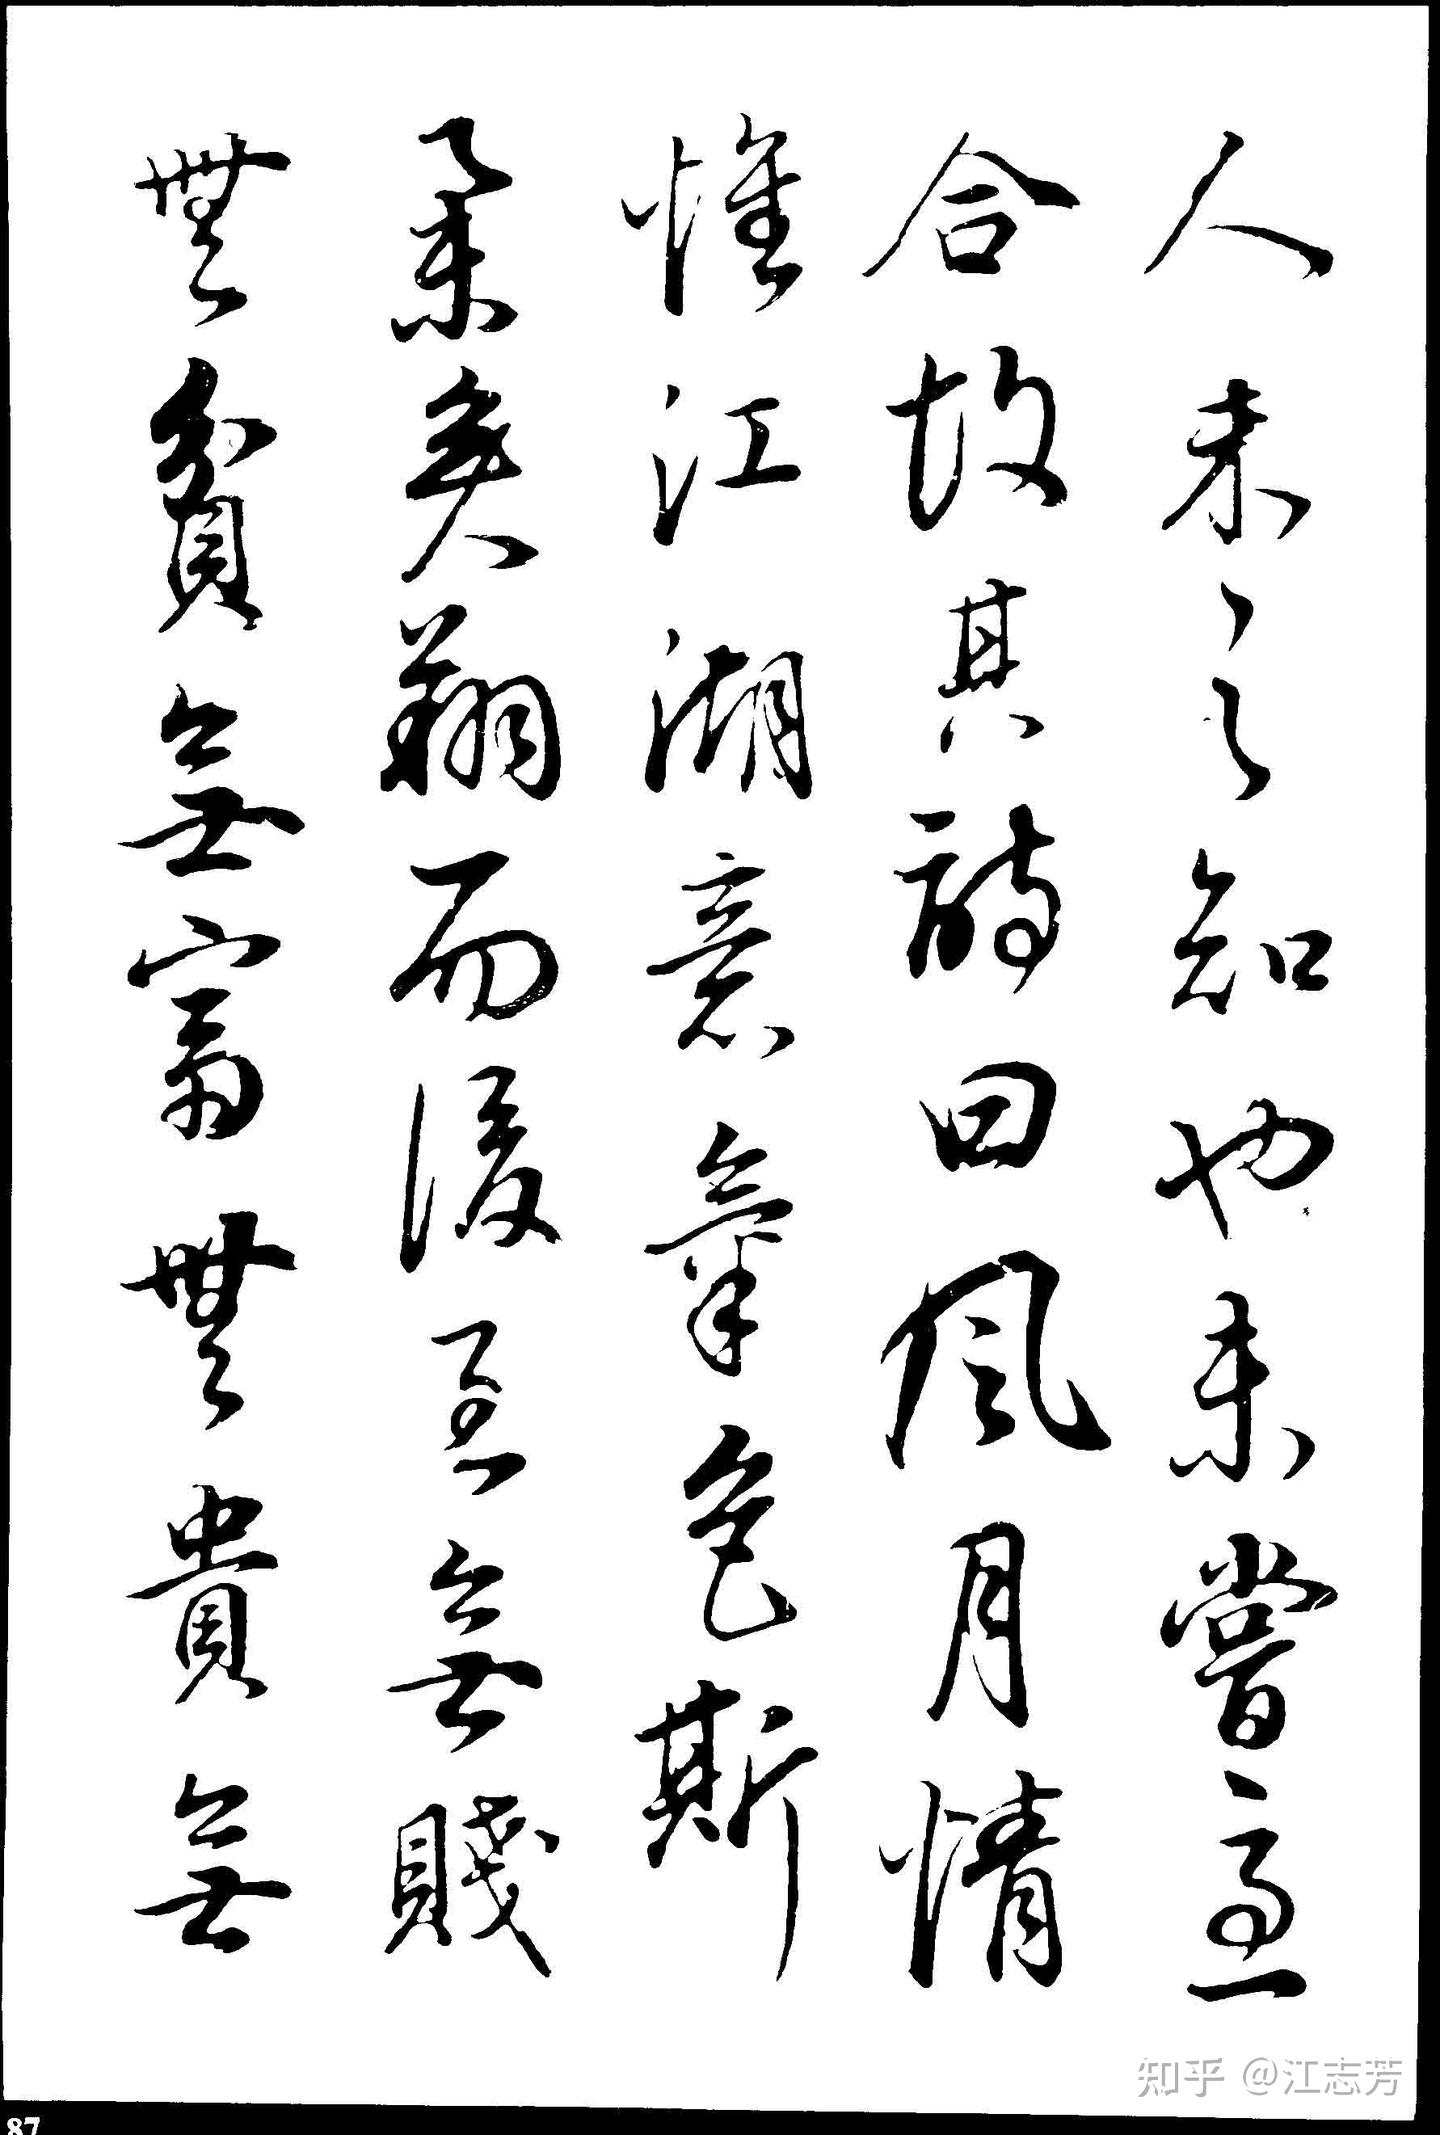 人未之知也未嘗亟
合故其詩曰風月情
惟江湖意氣色斯
柔矣翔而後至無賤
無貧無富無貴無
知乎 @江志芳
87